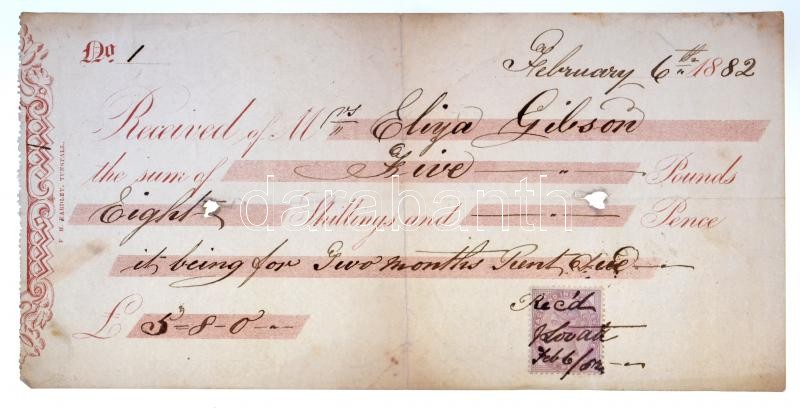 No 1
February 6th 1882
Received of Mrs Eliza Gibson
the sum of Five " Pounds
Eight Shillings and " Pence
it being for Two months Rent due
£ 5=8=0
Rec'd
J Lovatt
Feb 6/82
F. H. EARDLEY, TUNSTALL.
darabanth